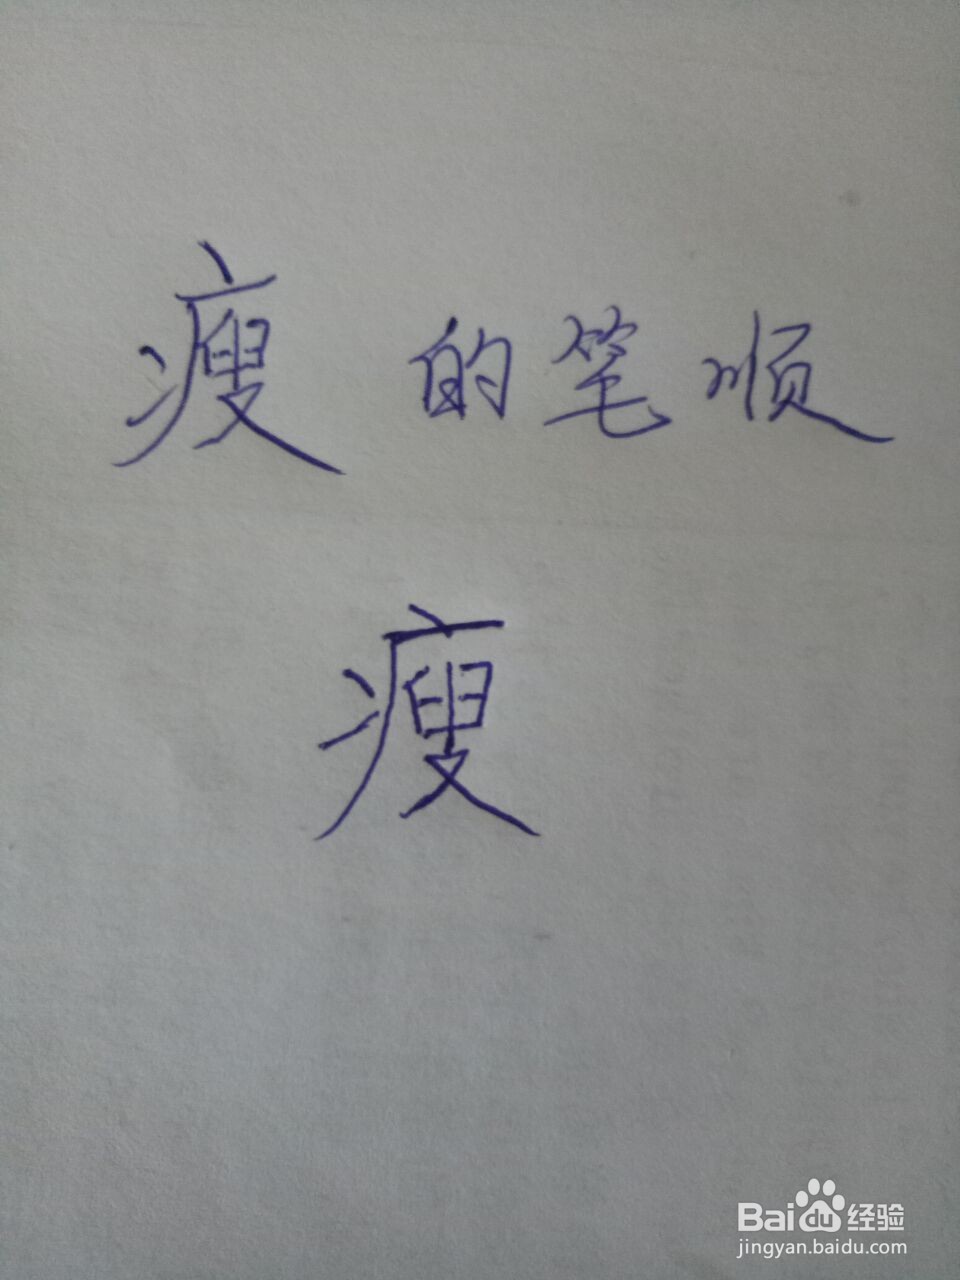 瘦的笔顺
瘦
Baidu经验
jingyan.baidu.com